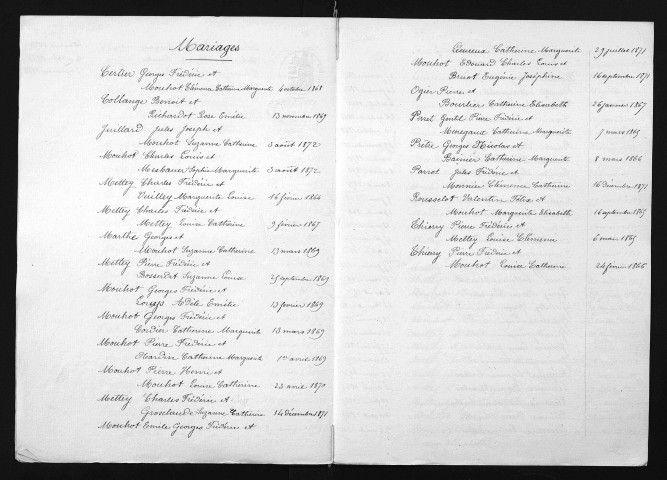 Mariages
Certier Georges Frédéric et
Mouhot Eléonore Catherine Marguerite 4 octobre 1868
Collange Benoit et
Richardot Rose Emélie 13 novembre 1869
Juillard Jules Joseph et
Mouhot Suzanne Catherine 3 août 1872
Mouhot Charles Louis et
Mesbauer Sophie Marguerite 3 août 1872
Mettey Charles Frédéric et
Vuilley Marguerite Louise 16 février 1864
Mettey Charles Frédéric et
Mettey Louise Catherine 9 février 1867
Marthe Georges et
Mouhot Suzanne Catherine 13 mars 1869
Mettey Pierre Frédéric et
Bosserdet Suzanne Louise 25 septembre 1869
Mouhot Georges Frédéric et
Loup Adèle Emélie 13 février 1869
Mouhot Georges Frédéric et
Cordier Catherine Marguerite 13 mars 1869
Mouhot Pierre Frédéric et
Hardin Catherine Marguerite 1er avril 1869
Mouhot Pierre Henri et
Mouhot Louise Catherine 23 avril 1870
Mettey Charles Frédéric et
Groselaude Suzanne Catherine 14 Décembre 1871
Mouhot Emile Georges Frédéric et
Lecureux Catherine Marguerite 29 juillet 1871
Mouhot Edouard Charles Louis et
Bruot Eugénie Joséphine 16 septembre 1871
Ogier Pierre et
Bourlier Catherine Elisabeth 26 janvier 1867
Perret Gentil Pierre Frédéric et
Menegaux Catherine Marguerite 7 mars 1865
Pretre Georges Nicolas et
Bainier Catherine Marguerite 8 mars 1866
Parrot Jules Frédéric et
Monnier Clémence Catherine 16 Décembre 1871
Rousselot Valentin Félix et
Mouhot Marguerite Elisabeth 16 septembre 1865
Thiery Pierre Frédéric et
Mettey Louise Clémence 6 mai 1865
Thiery Pierre Frédéric et
Mouhot Louise Catherine 24 février 1866